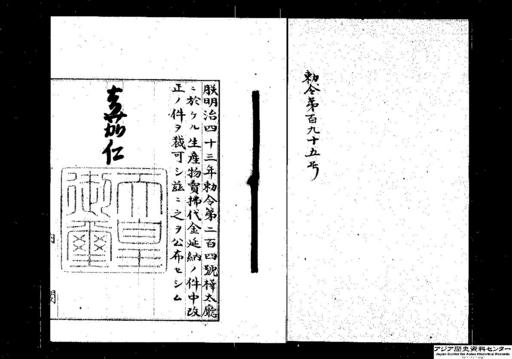 勅令第百九十五号
朕明治四十三年勅令第二百四號樺太廳
ニ於ケル生産物賣拂代金延納ノ件中改
正ノ件ヲ裁可シ茲ニ之ヲ公布セシム
嘉仁
天皇
御璽
内
閣
アジア歴史資料センター
Japan Center for Asian Historical Records